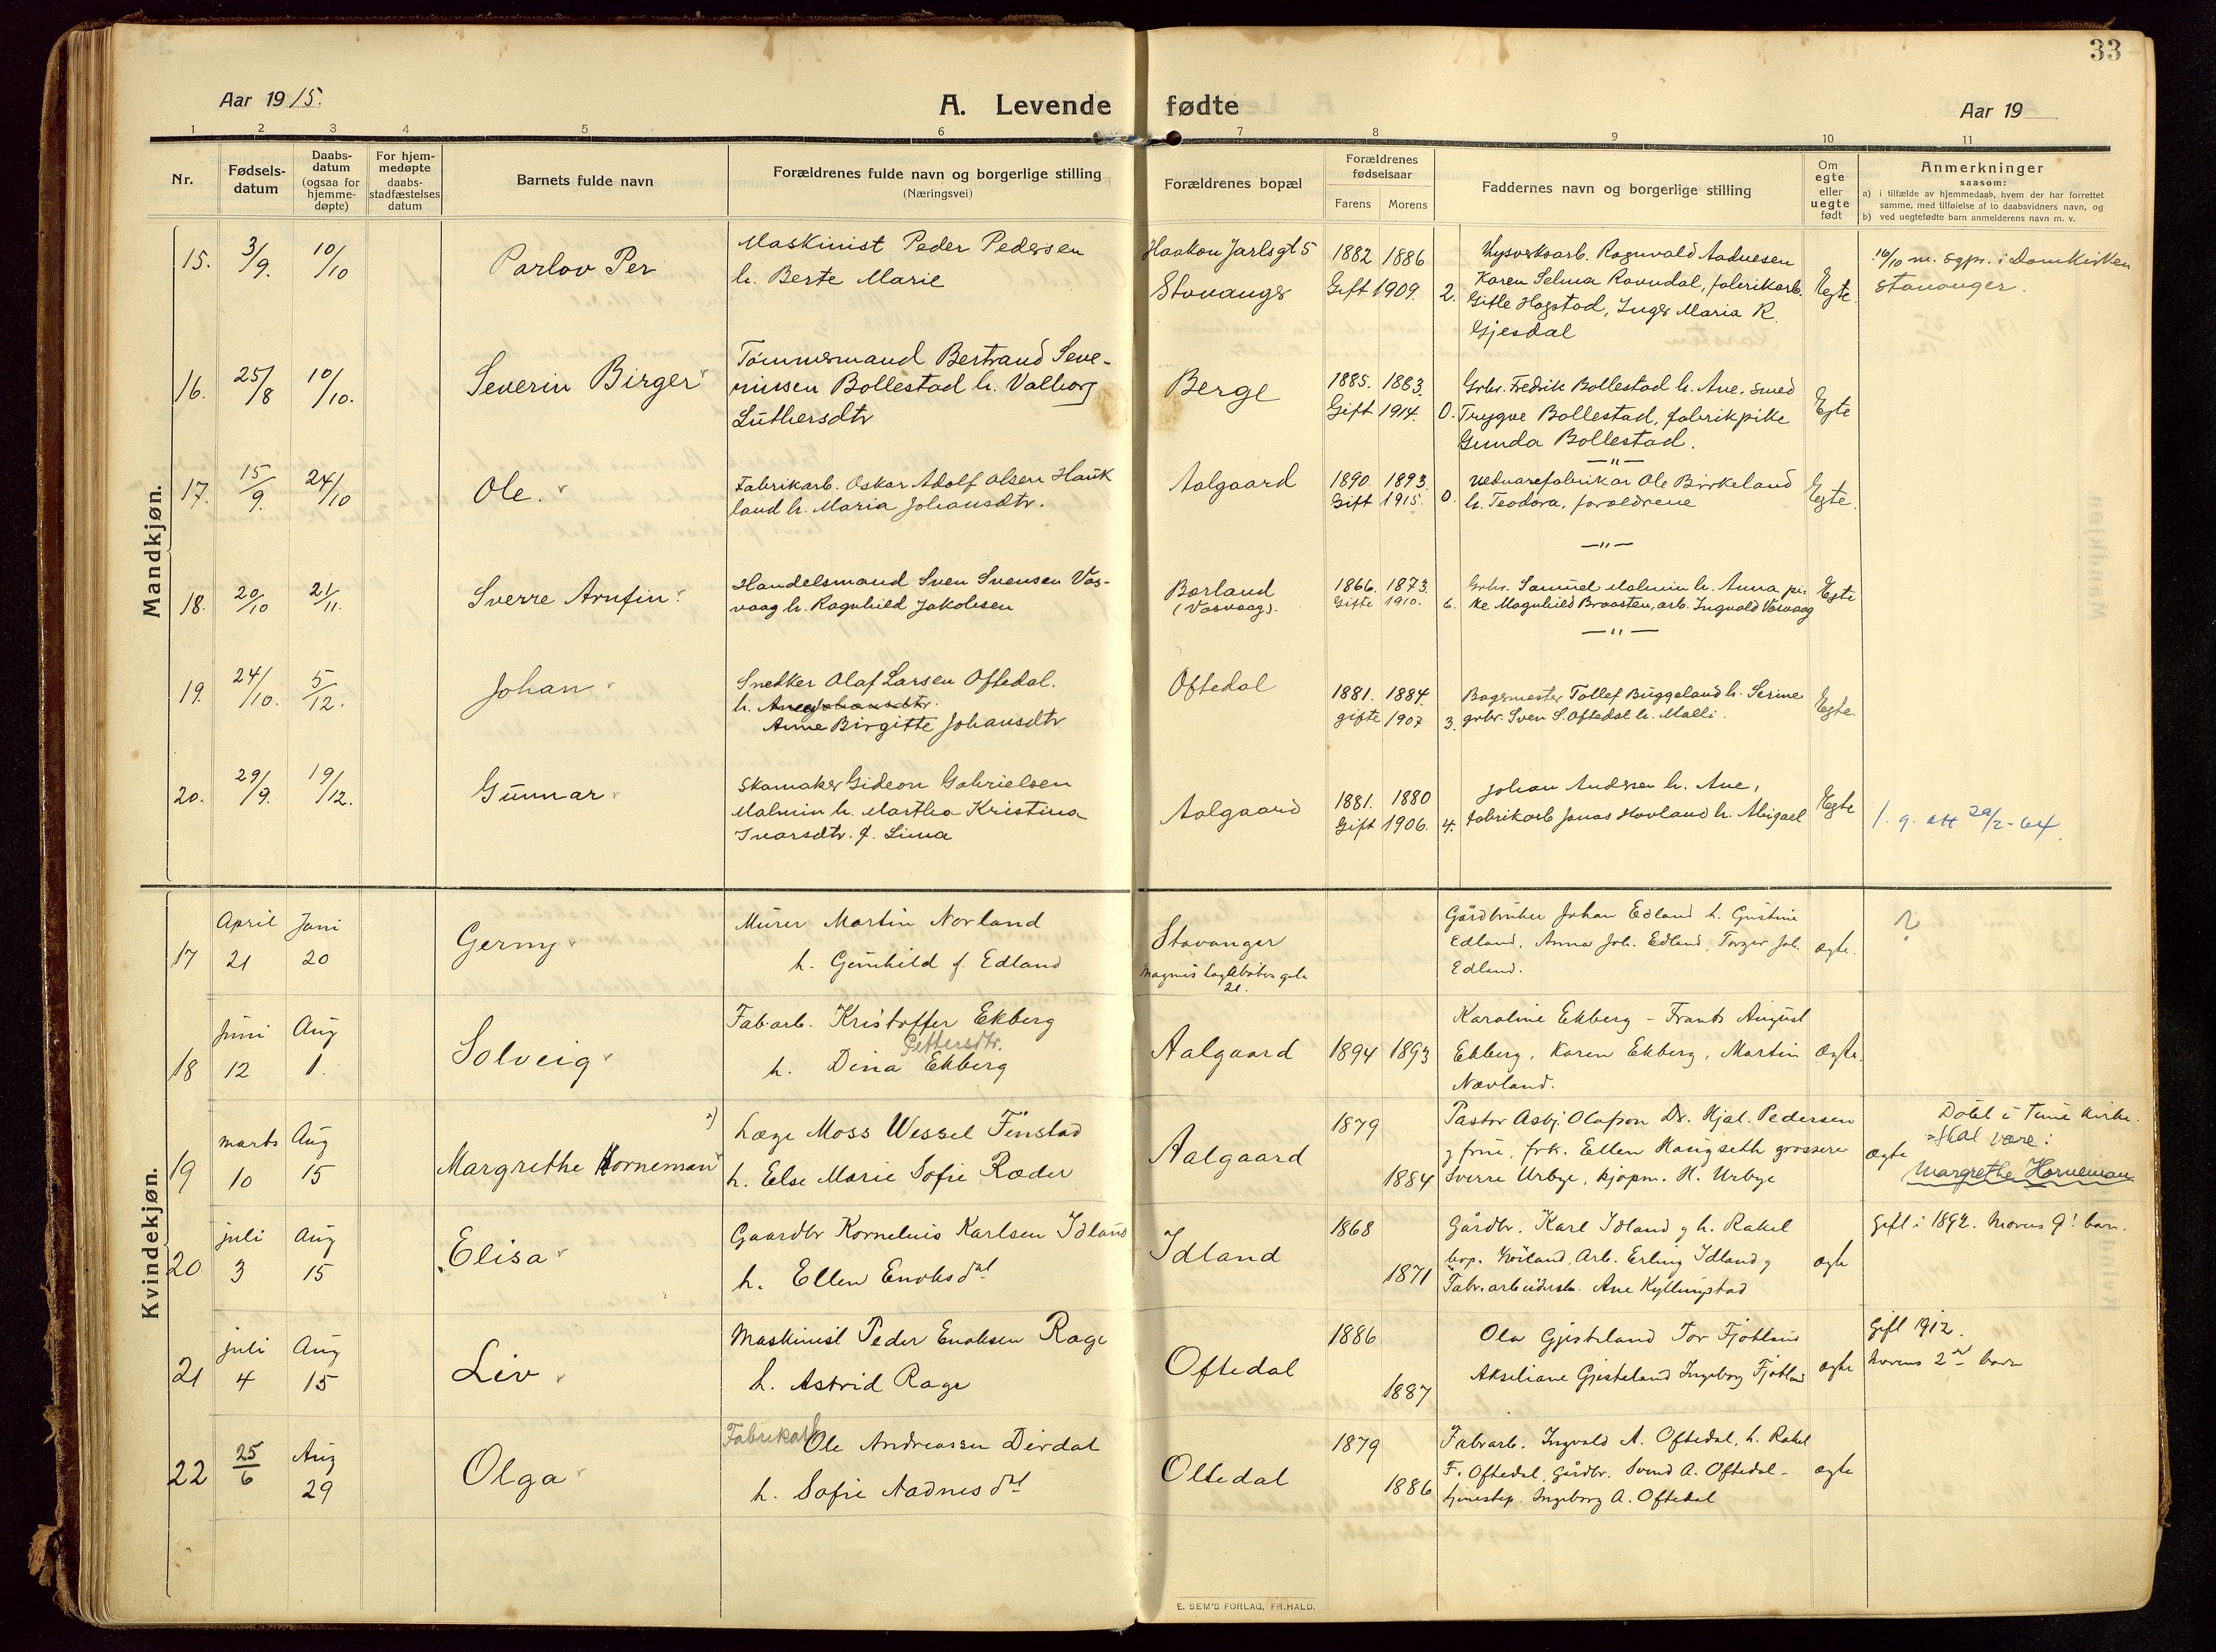 33
Aar 1915.
A. Levende fødte
Aar 19
1 2 3 4 5 6 7 8 9 10 11
Nr.
Fødsels-
datum
Daabs-
datum
(ogsaa for
hjemme-
døpte)
For hjem-
medøpte
daabs-
stadfæstelses
datum
Barnets fulde navn
Forældrenes fulde navn og borgerlige stilling
(Næringsvei)
Forældrenes bopæl
Forældrenes
fødselsaar
Farens Morens
Faddernes navn og borgerlige stilling
Om
egte
eller
uegte
født
Anmerkninger
saasom:
a) i tilfælde av hjemmedaab, hvem der har forrettet
samme, med tilføielse af to daabsvidners navn, og
b) ved uegtefødte barn anmelderens navn m. v.
Mandkjøn.
15. 3/9. 10/10 Parlov Per
Maskinist Peder Pedersen
h. Berte Marie
Haakon Jarlsgt 5
Stavanger
1882 1886
Gift 1909. 2.
Ragnvald Aadnesen
Karen Selma Ravndal, fabrikarb.
Gitle Hogstad, Inger Maria R.
Gjesdal
Egte.
10/10 m. sgpr. i Domkirken
Stavanger.
16. 25/8 10/10. Severin Birger
Tømmermand Bertrand Seve-
rinsen Bollestad h. Valborg
Luthersdtr
Berge
1885. 1883.
Gift 1914. 0.
Grbr. Fredrik Bollestad h. Ane, smed
Trygve Bollestad, fabrikpike
Gunda Bollestad.
Egte
17. 15/9. 24/10 Ole.
Fabrikarb. Oskar Adolf Olsen Hauk
land h. Maria Johansdtr.
Aalgaard
1890. 1893.
Gift 1915. 0.
Uldvarefabrikar Ole Birkeland
h. Teodora, forældrene
Egte.
—"—
18. 20/10 21/11. Sverre Arnfin
Handelsmand Sven Svensen Vas-
vaag h. Ragnhild Jakobsen
Børland
(Vasvaag).
1866. 1873.
Gifte 1910. 6.
Grbr. Samuel Malmin h. Anna, pi-
ke Magnhild Braasten, arb. Ingvald Vasvaag
Egte
—"—
19. 24/10. 5/12. Johan
Snedker Olaf Larsen Oftedal.
h. Ane Johansdtr.
Anne Birgitte Johansdtr
Oftedal
1881. 1884.
gifte 1907 3.
Bagermester Tollef Buggeland h. Serine
grbr. Sven S. Oftedal h. Malli.
Egte.
20. 29/9. 19/12. Gunnar
Skomaker Gideon Gabrielsen
Malmin h. Martha Kristina
Ivarsdtr. f. Lima
Aalgaard
1881. 1880
Gift 1906. 4.
Johan Andersen h. Ane,
fabrikarb Jonas Hovland h. Abigael
Egte
f. g. att 29/2-64.
Kvindekjøn.
17 April 21 Juni 20 Germy
Murer Martin Norland
h. Gunhild f. Edland
Stavanger
Magnus Lagabøters gate
21.
Gårdbruker Johan Edland h. Gustine
Edland, Anna Joh. Edland, Torger Joh.
Edland.
ægte.
?
18 Juni 12 Aug 1. Solveig
Fab.arb. Kristoffer Ekberg
Pettersdtr.
h. Dina Ekberg
Aalgaard
1894 1893
Karoline Ekberg – Frants August
Ekberg, Karen Ekberg, Martin
Nævland.
Ægte.
19 marts 10 Aug 15 Margrethe Horneman
Læge Moss Wessel Finstad
h. Else Marie Sofie Ræder
Aalgaard
1879
1884
Pastor Asbj. Olafson Dr. Hjal. Pedersen
g frue, frk. Ellen Haugseth grosserer
Sverre Urbye, kjøpm. H. Urbye
ægte
Døbt i Time kirke.
skal være:
Margrethe Horneman
20 juli 3 Aug 15 Elisa
Gaardbr Kornelius Karlsen Idland
h. Ellen Enoksdat
Idland
1868
1871
Gårdbr. Karl Idland g h. Rakel
bop. Høiland, Arb. Erling Idland g
Fabr.arbeiderske Ane Kyllingstad
ægte
Gift i 1892. Morens 9! barn.
21 juli 4 Aug 15 Liv
Maskinist Peder Enoksen Rage
h. Astrid Rage
Oftedal
1886
1887
Ola Gjesteland Tor Fjotland
Akseliane Gjesteland Ingeborg Fjotland
ægte
Gift 1912.
Morens 2det barn
22 25/6 Aug 29 Olga
Fabrikarb Ole Andreassen Dirdal
h. Sofie Aadnesdat
Oltedal
1879
1886
Fabrarb. Ingvald A. Oftedal, h. Rakel
F. Oftedal, Gårdbr. Svend A. Oftedal –
tjenestep. Ingeborg A. Oftedal
ægte
E. SEM'S FORLAG, FR.HALD.